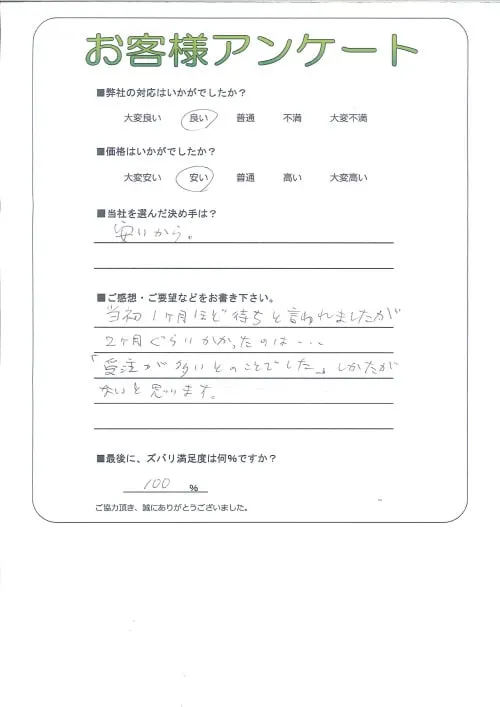 お客様アンケート
■弊社の対応はいかがでしたか？
大変良い 良い 普通 不満 大変不満
■価格はいかがでしたか？
大変安い 安い 普通 高い 大変高い
■当社を選んだ決め手は？
安いから。
■ご感想・ご要望などをお書き下さい。
当初1ヶ月ほど待ちと言われましたが
2ヶ月ぐらいかかったのは・・・
「受注が多いとのことでした」しかたが
ないと思います。
■最後に、ズバリ満足度は何％ですか？
100 %
ご協力頂き、誠にありがとうございました。